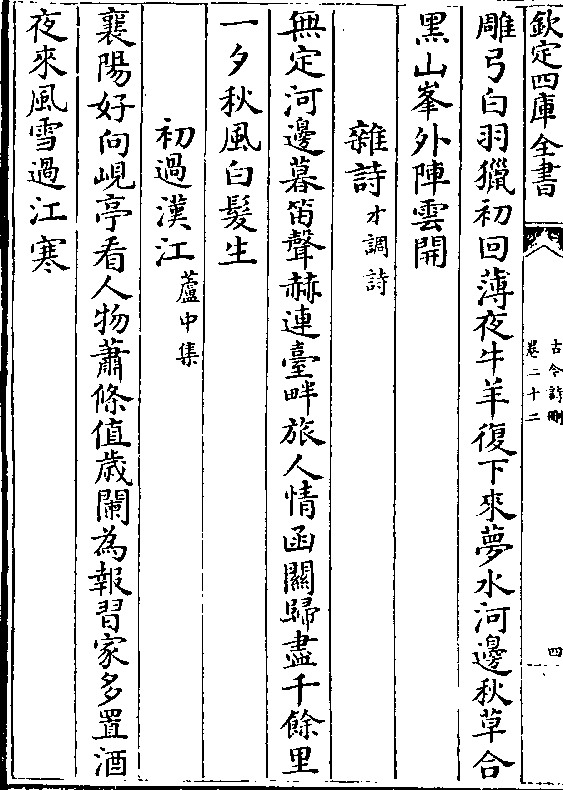 欽定四庫全書
古今詩刪
卷二十二
四
雕弓白羽獵初回薄夜牛羊復下來夢水河邊秋草合
黑山峯外陣雲開
雜詩才調詩
無定河邊暮笛聲赫連臺畔旅人情函關歸盡千餘里
一夕秋風白髮生
初過漢江蘆中集
襄陽好向峴亭看人物蕭條值歲闌為報習家多置酒
夜來風雪過江寒